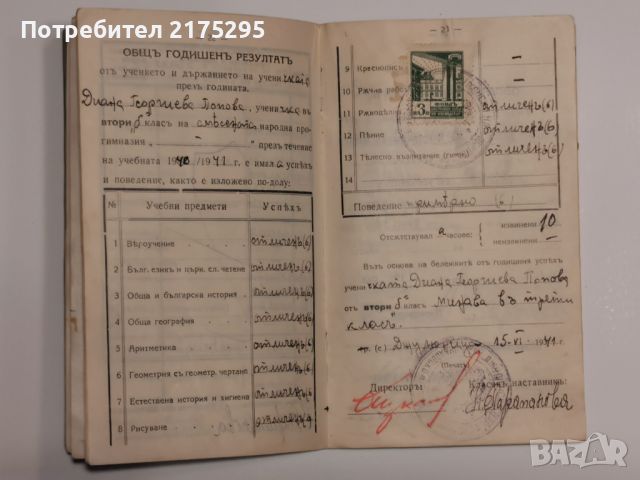 Потребител 2175295
ОБЩЪ ГОДИШЕНЪ РЕЗУЛТАТЪ
отъ учението и държанието на учени чката
презъ годината.
Диана Георгиева Попова, учени чка въ
втори "б" класъ на смесената народна про-
гимназия „ — " презъ течение
на учебната 1940/1941 г. е имала успѣхъ
и поведение, както е изложено по-долу:
№ Учебни предмети Успѣхъ
1 Вѣроучение отличенъ (6)
2 Бълг. езикъ и църк. сл. четене отличенъ (6)
3 Обща и българска история отличенъ (6)
4 Обща география отличенъ (6)
5 Аритметика отличенъ (6)
6 Геометрия съ геометр. чертане отличенъ (6)
7 Естествена история и хигиена отличенъ (6)
8 Рисуване отличенъ (6)
— 21 —
9 Краснопись —
10 Ржчна раб —
11 Ржкодѣл отличенъ (6)
12 Пѣние отличенъ (6)
13 Тѣлесно възпитание (гимн.) отличенъ (6)
14
3 ЛВ
ФОНДЪ
Поведение примѣрно (6)
Отсѫтствувал а часове: извинени 10
неизвинени —
Въ основа на бележките отъ годишния успѣхъ
учени чката Диана Георгиева Попова
отъ втори "б" класъ минава въ трети
класъ.
гр. (с) 15-VI- 1941 г.
(Печатъ)
Директоръ:
Класенъ наставникъ:
BAZAR
bg